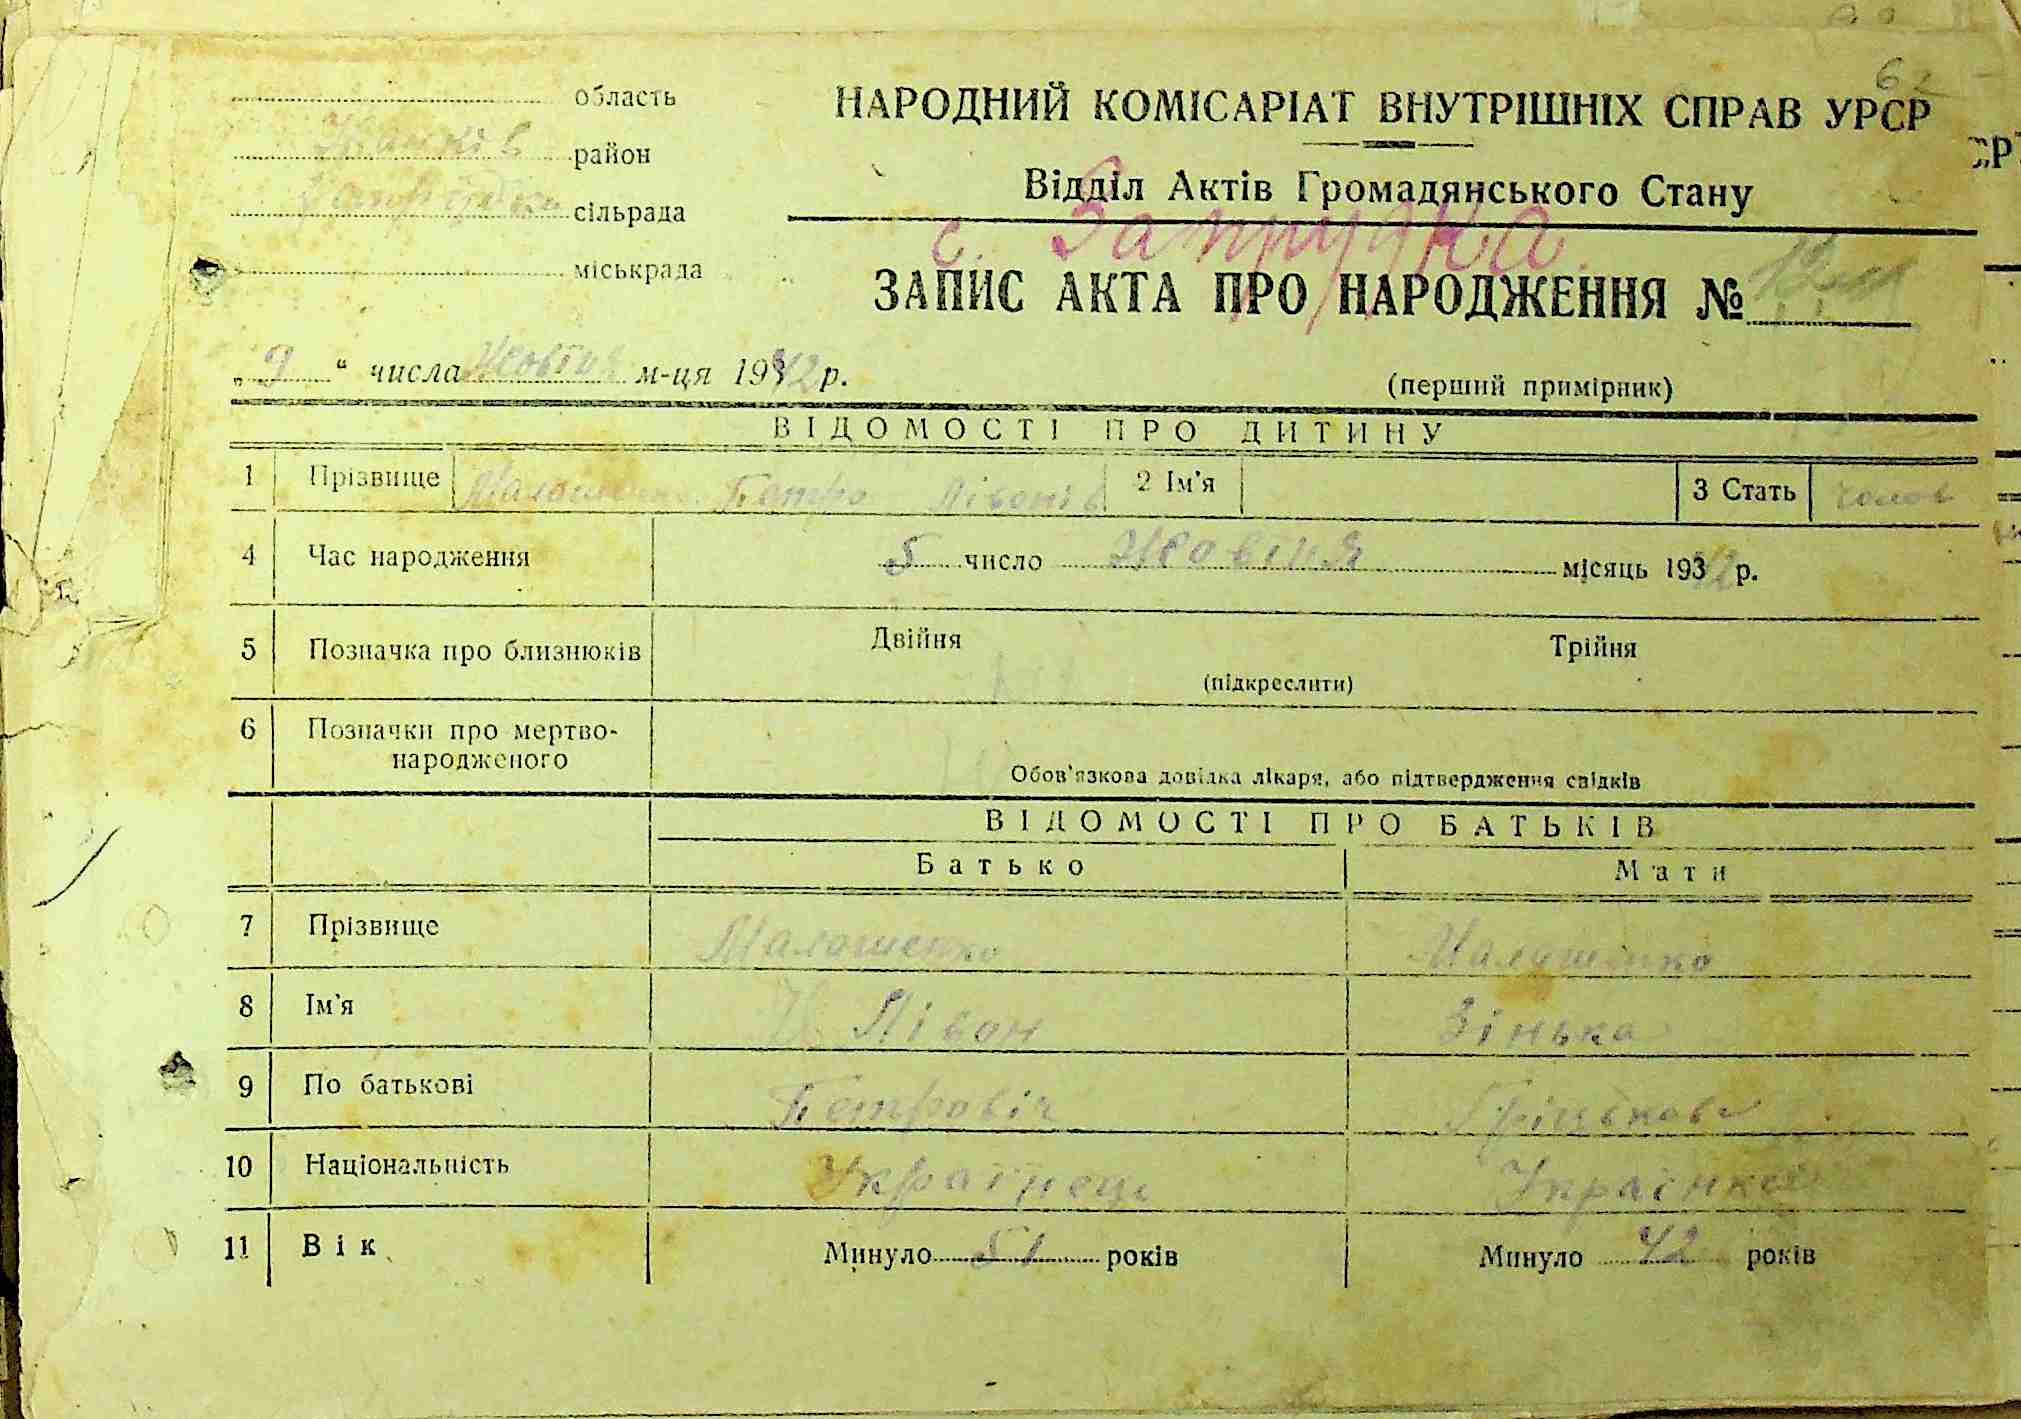 62
область
НАРОДНИЙ КОМІСАРІАТ ВНУТРІШНІХ СПРАВ УРСР
район
Відділ Актів Громадянського Стану
сільрада
с. Запрудка
міськрада
ЗАПИС АКТА ПРО НАРОДЖЕННЯ №
„9" числа Жовтня м-ця 1942 р.
(перший примірник)
ВІДОМОСТІ ПРО ДИТИНУ
1 Прізвище Малошенко Петро Лівонів 2 Ім'я 3 Стать чолов
4 Час народження 5 число Жовтня місяць 19342 р.
5 Позначка про близнюків Двійня Трійня
(підкреслити)
6 Позначки про мертво-
народженого
Обов'язкова довідка лікаря, або підтвердження свідків
ВІДОМОСТІ ПРО БАТЬКІВ
Батько Мати
7 Прізвище Малошенко Малошенко
8 Ім'я Лівон Зінька
9 По батькові Петровіч Гріцькова
10 Національність Українець Українка
11 Вік Минуло 51 років Минуло 42 років